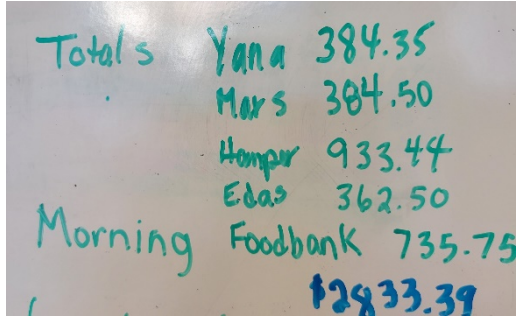 Totals Yana 384.35
Mars 384.50
Hamper 933.44
Edas 362.50
Morning Foodbank 735.75
$2833.39